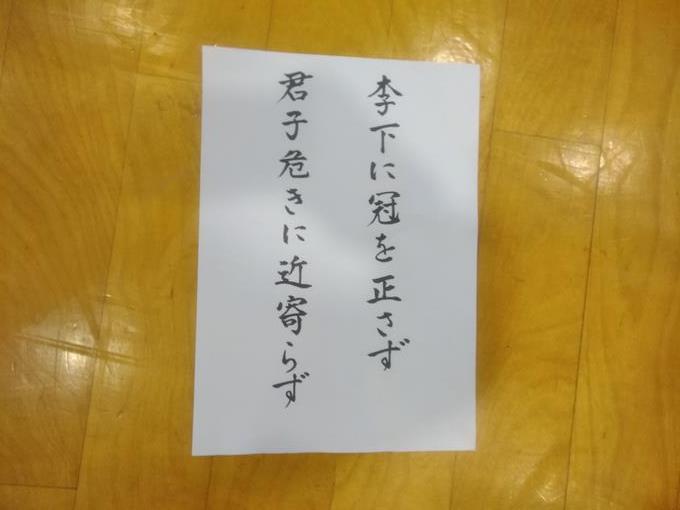 李下に冠を正さず
君子危きに近寄らず